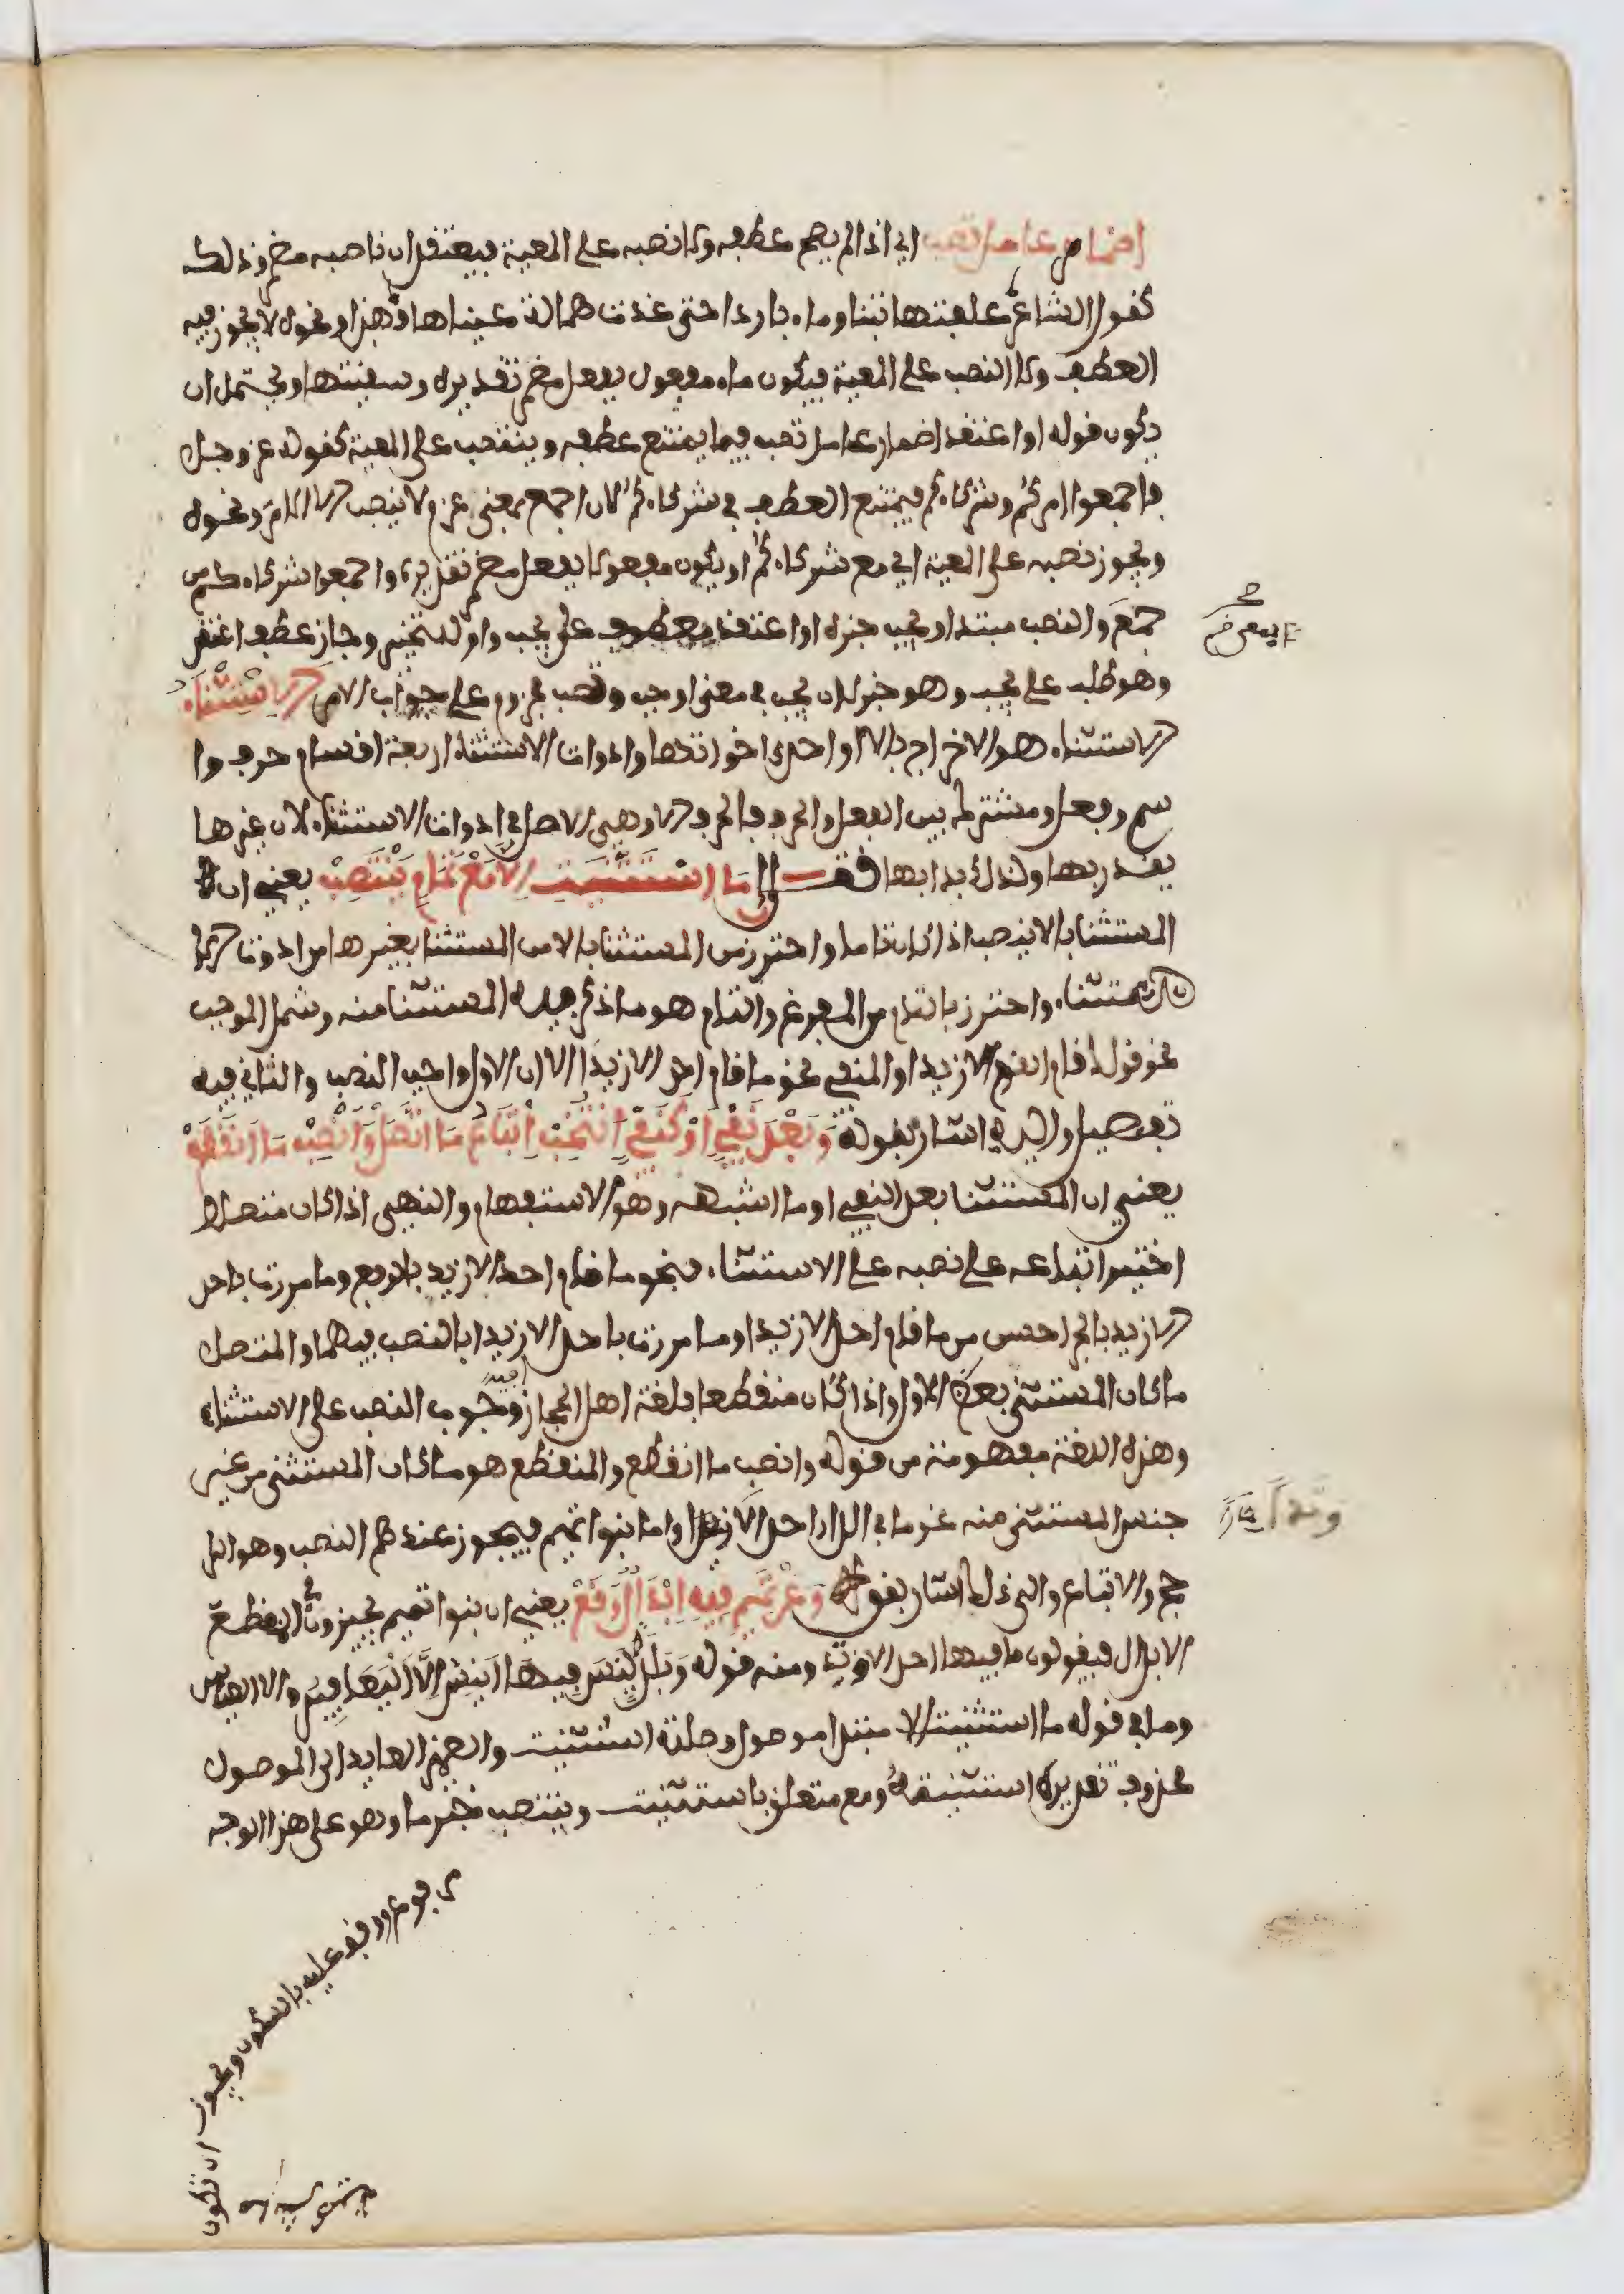 اضمار عامل تصب اي اذا لم يصح عطفه ولا نصبه على المعية فيعتقد ان ناصبه مضمر وذلك
كقول الشاعر علفتها تبنا وماء باردا حتى غدت همالة عيناها فهذا ونحوه لا يجوز فيه
العطف ولا النصب على المعية فيكون ماء مفعول بفعل مضمر تقديره وسقيتها ويحتمل ان
يكون قوله او اعتقد اضمار عامل تصب فيما يمتنع عطفه وينتصب على المعية كقوله عز وجل
فاجمعوا امركم وشركاءكم فيمتنع العطف في شركاءكم لان اجمع بمعنى عزم ولا ينصب الا الامر ونحوه
ويجوز نصبه على المعية اي مع شركاءكم او يكون مفعولا بفعل مضمر تقديره واجمعوا شركاءكم من
جمع والنصب مبتدا ويجب خبره او اعتقد معطوف على يجب واو للتخيير وجاز عطف اعتقد
وهو طلب على يجب وهو خبر لان يجب في معنى اوجب وتصب مجزوم على جواب الامر الاستثناء
الاستثناء هو الاخراج بالا او احدى اخواتها وادوات الاستثناء اربعة اقسام حرف وا
سم وفعل ومشترك بين الفعل والحرف فالحرف الا وهي الاصل في ادوات الاستثناء لان غيرها
يقدر بها ولذلك بدا بها فقال ما استثنيت الا مع تمام ينتصب يعني ان
المستثنا بالا ينصب اذا كان تاما واحترز من المستثنا بالا من المستثنا بغيرها من ادوات الا
الاستثناء واحترز بالتام من المفرغ والتام هو ما ذكر فيه المستثنا منه وشمل الموجب
نحو قولك قام القوم الا زيدا والمنفي نحو ما قام احد الا زيدا الا ان الاول واجب النصب والثاني فيه
تفصيل واليه اشار بقوله وبعد نفي او كنفي انتخب اتباع ما اتصل وانصب ما انقطع
يعني ان المستثنا بعد النفي او ما اشبهه وهو الاستفهام والنهي اذا كان متصلا
اختير اتباعه على نصبه على الاستثناء فنحو ما قام احد الا زيد بالرفع وما مررت باحد
الا زيد بالجر احسن من ما قام احد الا زيدا وما مررت باحد الا زيدا بالنصب فيهما والمتصل
ما كان المستثنى بعض الاول واذا كان منقطعا فلغة اهل الحجاز فيه وجوب النصب على الاستثناء
وهذه اللغة مفهومة من قوله وانصب ما انقطع والمنقطع هو ما كان المستثنى من غير
جنس المستثنى منه نحو ما في الدار احد الا وتدا واما بنوا تميم فيجوز عندهم النصب وهو الار
جح والاتباع والى ذلك اشار بقوله وعن تميم فيه ابدال وقع يعني ان بنوا تميم يجيزون في المنقطع
الابدال فيقولون ما فيها احد الا وتد ومنه قوله وبلد ليس فيها انيس الا اليعافير والا العيس
وما في قوله ما استثنيت الا مبتدا موصول وصلته استثنيت والضمير العايد الى الموصول
محذوف تقديره استثنيته ومع متعلق باستثنيت وينتصب خبر ما وهو على هذا الوجه
مرفوع ووقف عليه بالسكون ويجوز ان تكون
وتدا